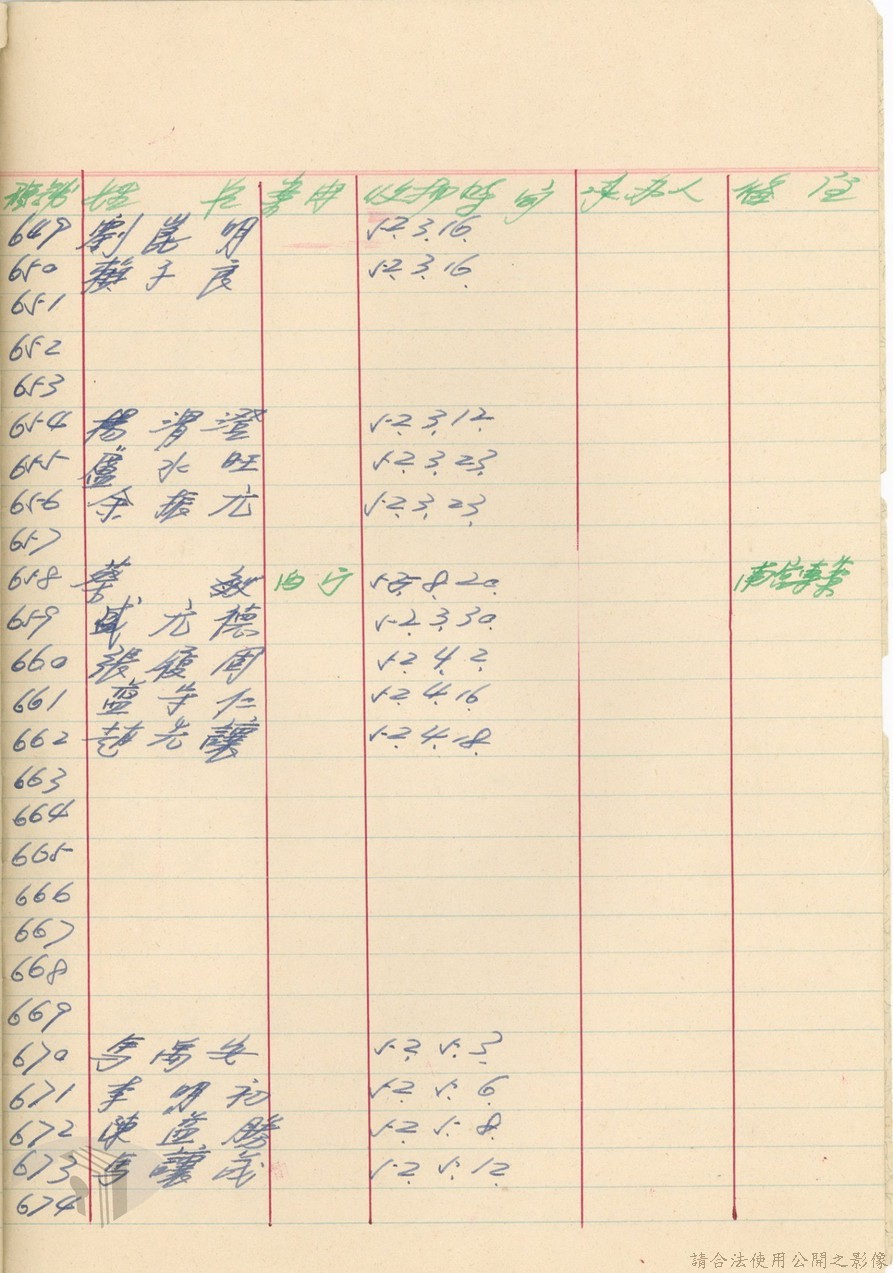 號 姓 名 案由 收押時間 承办人 備註
649 劉崑明 52.3.16
650 賴子良 52.3.16.
651
652
653
654 楊渭澄 52.3.12.
655 盧水旺 52.3.23.
656 余振元 52.3.23.
657
658 蔡敏 52.8.20.
659 盛元德 52.3.30.
660 張履周 52.4.2.
661 藍守仁 52.4.16.
662 趙光讓 52.4.18.
663
664
665
666
667
668
669
670 馬禹安 52.5.3.
671 李明初 52.5.6.
672 陳益勝 52.5.8.
673 馬讓茂 52.5.12.
674
請合法使用公開之影像